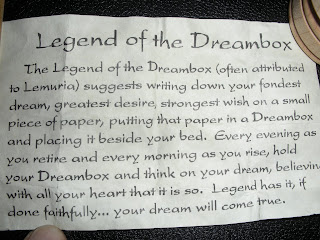 Legend of the Dreambox
The Legend of the Dreambox (often attributed
to Lemuria) suggests writing down your fondest
dream, greatest desire, strongest wish on a small
piece of paper, putting that paper in a Dreambox
and placing it beside your bed. Every evening as
you retire and every morning as you rise, hold
your Dreambox and think on your dream, believin
with all your heart that it is so. Legend has it, if
done faithfully... your dream will come true.